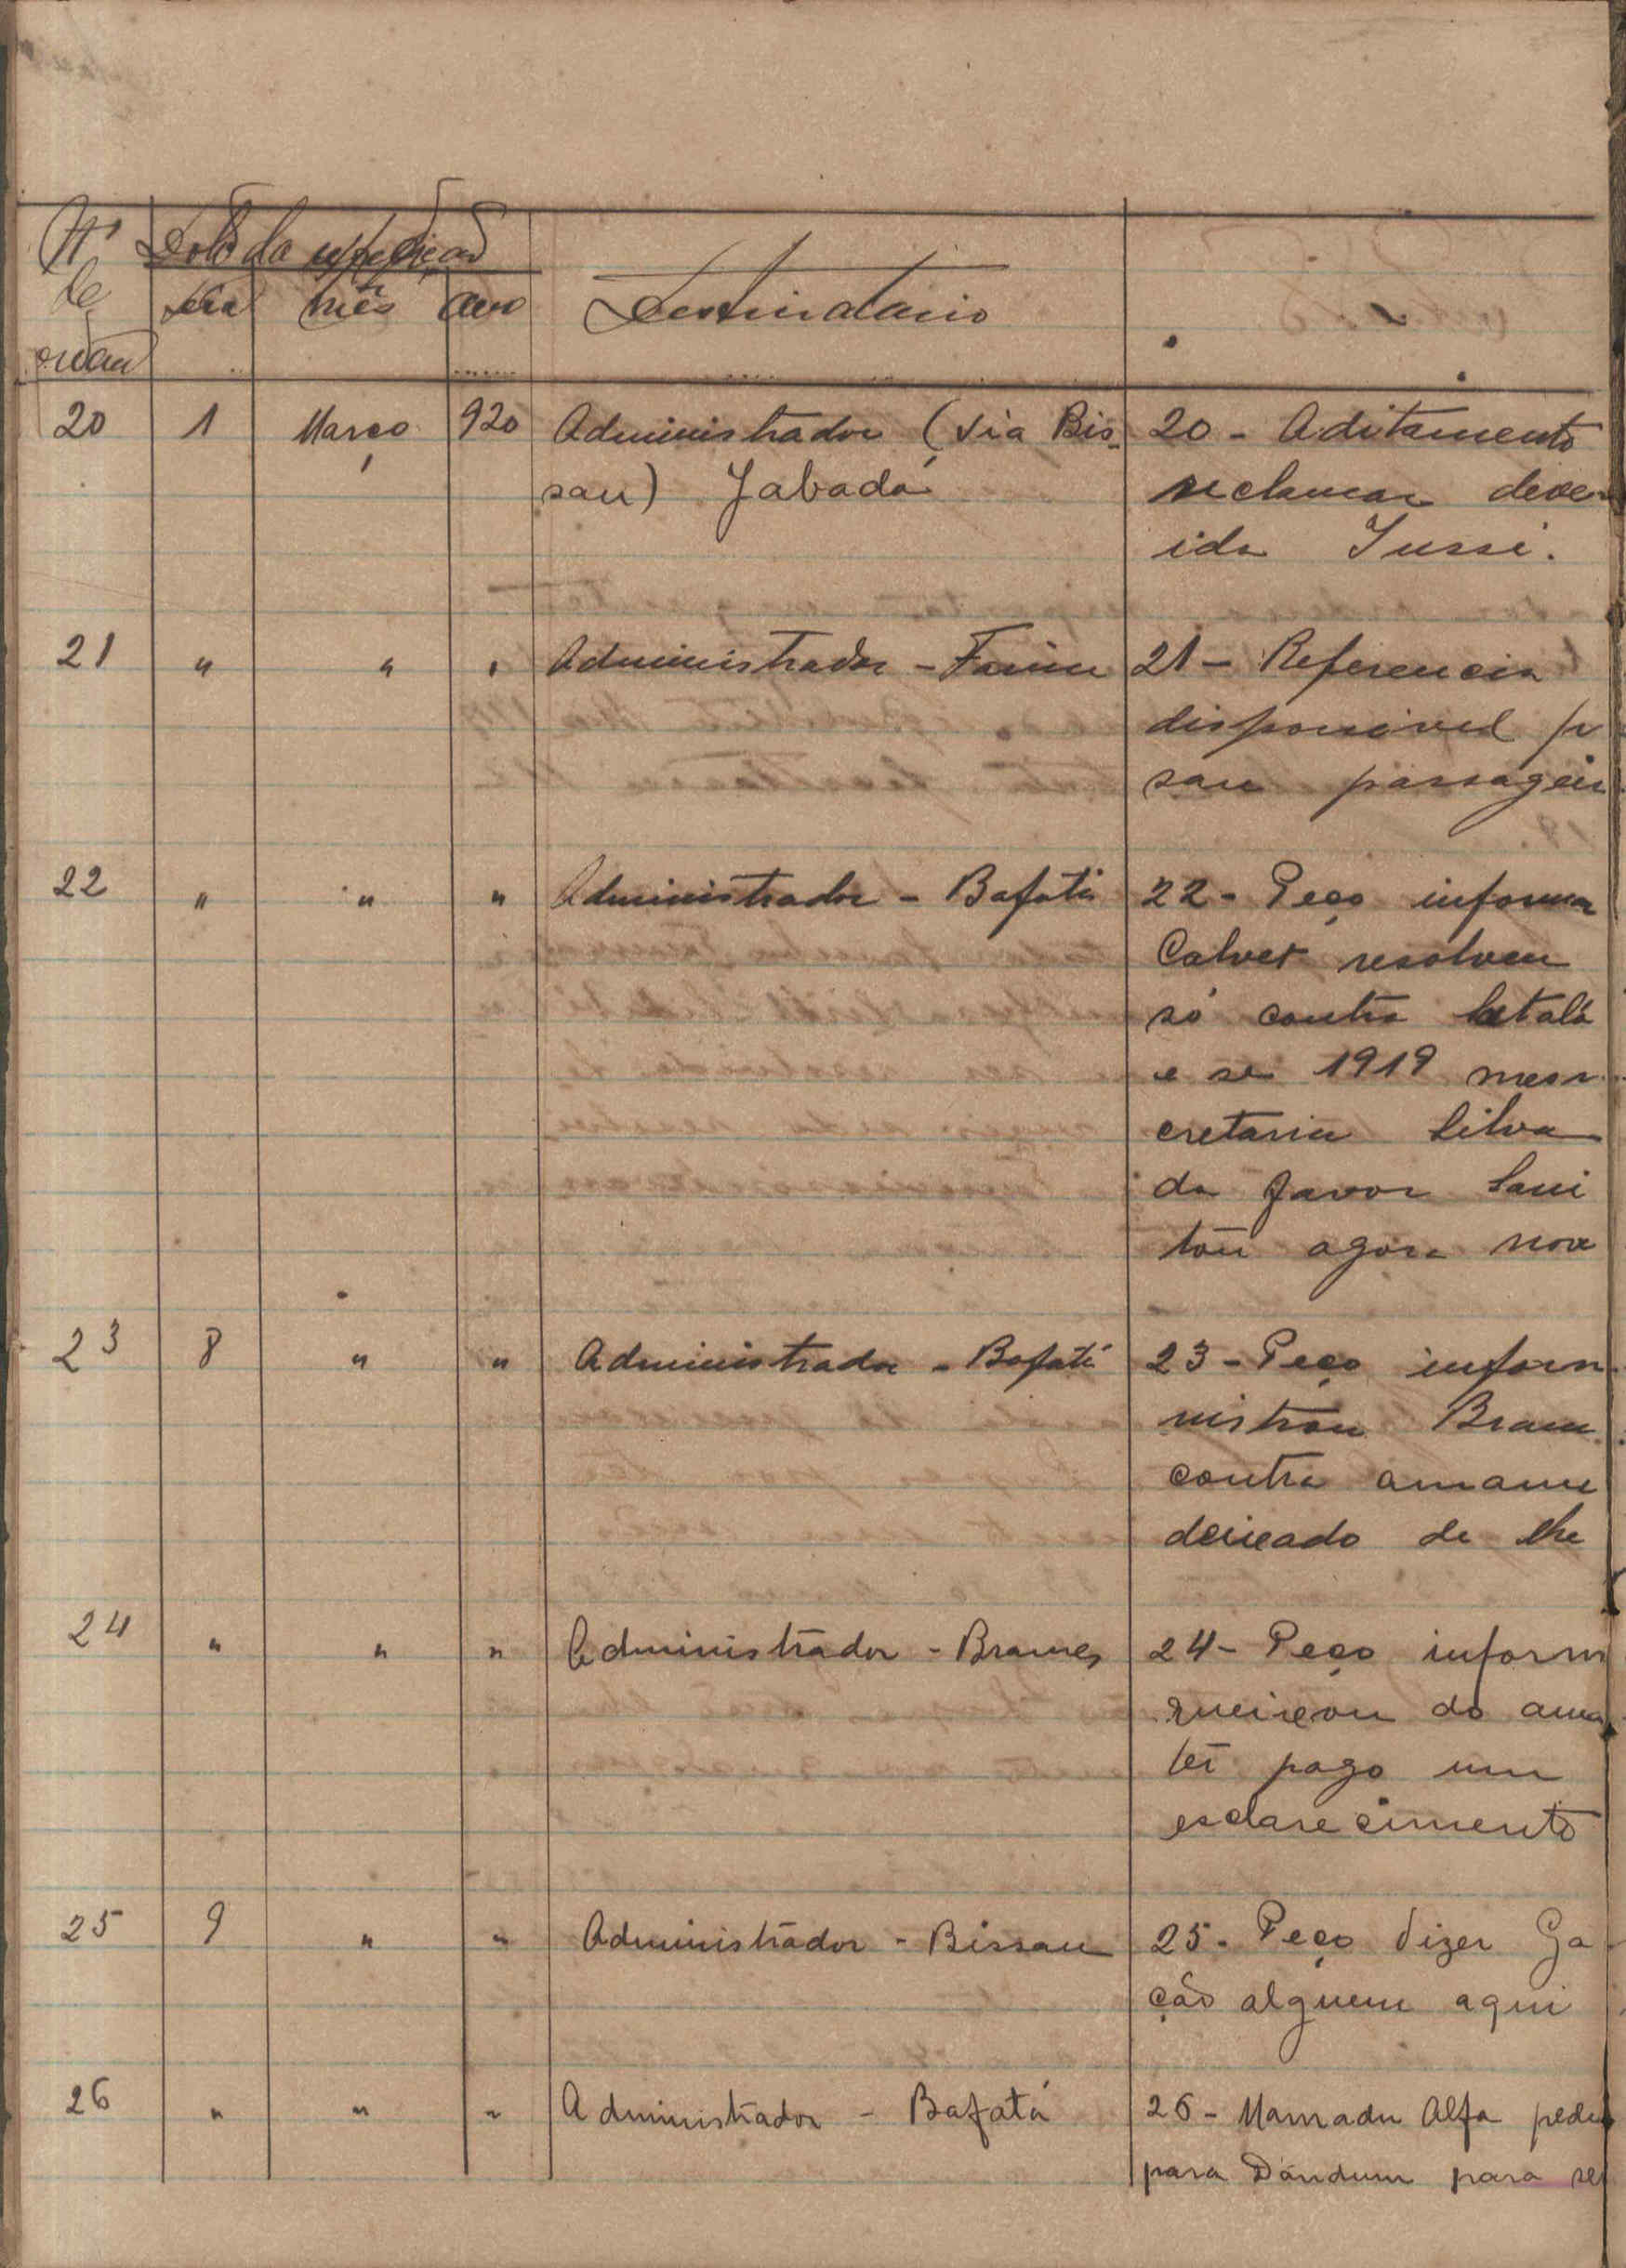 Nº Data da expedição
de dia mês ano Destinatario
ordem
20 1 Março 920 Administrador (via Bis- 20 - Aditamento
sau) Jabadá reclamar deve
ida Jussi.
21 " " " Administrador - Farim 21 - Referencia
disponivel p
sau passagem
22 " " " Administrador - Bafatá 22 - Peço informar
Calvet resolveu
só contra
e se 1919 mesm
cretaria Silva
da favor Sani
tou agora nova
23 8 " " Administrador - Bafatá 23 - Peço inform
nistrou Bram
contra amanu
deixado de lhe
24 " " " Administrador - Brames 24 - Peço inform
queixou do ama
ter pago um
esclarecimento
25 9 " " Administrador - Bissau 25 - Peço dizer Ga
ção alguem aqui
26 " " " Administrador - Bafatá 26 - Mamadu Alfa pediu
para Dandum para se